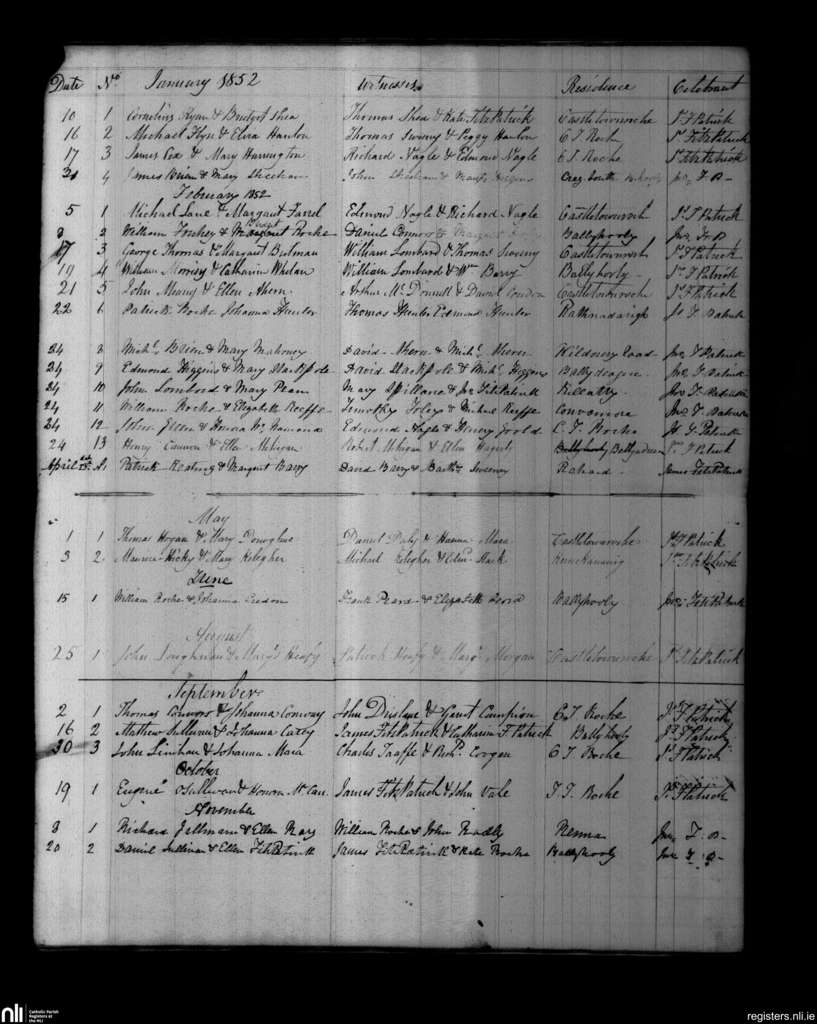 Date No January 1852 Witnesses Residence Celebrant
10 1 Cornelius Ryan & Bridget Shea Thomas Shea & Kate FitzPatrick Castletownroche Js F Patrick
16 2 Michael Flyn & Ellen Hanlon Thomas Sweny & Peggy Hanlon C T Roche Js FitzPatrick
17 3 James Cox & Mary Hannington Richard Nagle & Edmond Nagle C T. Roche Js FitzPatrick
31 4 James Brien & Mary Sheehan John Sheehan & South Jas F. P-
February 1852
5 1 Michael Lane & Margaret Farrel Edmond Nagle & Richard Nagle Castletownroch Js F Patrick
2 William & Roche Daniel Connor & Margaret Ballyhooly Jas F. P
17 3 George Thomas & Margaret Batman William Lombard & Thomas Sweeny Castletownroch Js F Patrick
19 4 William Morrisy & Catharine Whelan William Lombard & Wm Barry Ballyhooly - Js F Patrick
21 5 John Meany & Ellen Ahern Arthur Mc Donnell & David Condon Castletownroche Js F Patrick
22 6 Patrick Roche Johanna Hunter Thomas Hunter Edmond Hunter Js F. Patrick
24 Michl. Brien & Mary Mahoney David Ahern & Michl. Ahern Jas F Patrick
24 9 Edmond Higgins & Mary Stackpole David Stackpole & Michl. Higgins Jas F. Patrick
24 10 John Lombard & Mary Mary Spillane & Jas FitzPatrick Jas F. Patrick
24 11 William Roche & Elizabeth Keeffe Timothy Foley & Michael Keeffe Convamore Jas F. Patrick
24 12 John & Edmond Nagle & Henry C. T. Roche Js F. Patrick
24 13 Henry Cannon & Ellen Mehigan Robert Mhigan & Ellen Hagerty Ballyhooly Js F Patrick
April Patrick Keating & Margaret Barry David Barry & Sweeney Rahard. James FitzPatrick
May
1 1 Thomas Hogan & Mary Donoghue Daniel Daly & Hanna Mara Castletownroche Js F Patrick
3 2 Maurice Hicky & Mary Kelegher Michael Kelegher & Edmd. Js FitzPatrick
June
15 1 William Roche & Johanna Creedon Frank & Elizabeth Ballyhooly Jas FitzPatrick
August
25 1 John & Margt Heafy Patrick Heafy & Margt Morgan Castletownroche Js FitzPatrick
September
2 1 Thomas Connors & Johanna Conway John Drislane & Garret Campion C T. Roche Js F Patrick
16 2 Mathew Sullivan & Johanna Casey James FitzPatrick & Catharin F Patrick Ballyhooly Js F Patrick
30 3 John Linihan & Johanna Mara Charles Taaffe & Coogan C T. Roche Js F Patrick
October
19 1 Eugene OSullivan & Honora Mc James FitzPatrick & John Vale T. Roche Js F Patrick
November
1 Richard & Ellen William Roche & John Jas F. P-
20 2 Daniel Sullivan & Ellen FitzPatrick James FitzPatrick & Kate Roche Ballyhooly Jas F. P-
nli Catholic Parish
Registers at
the NLI
registers.nli.ie